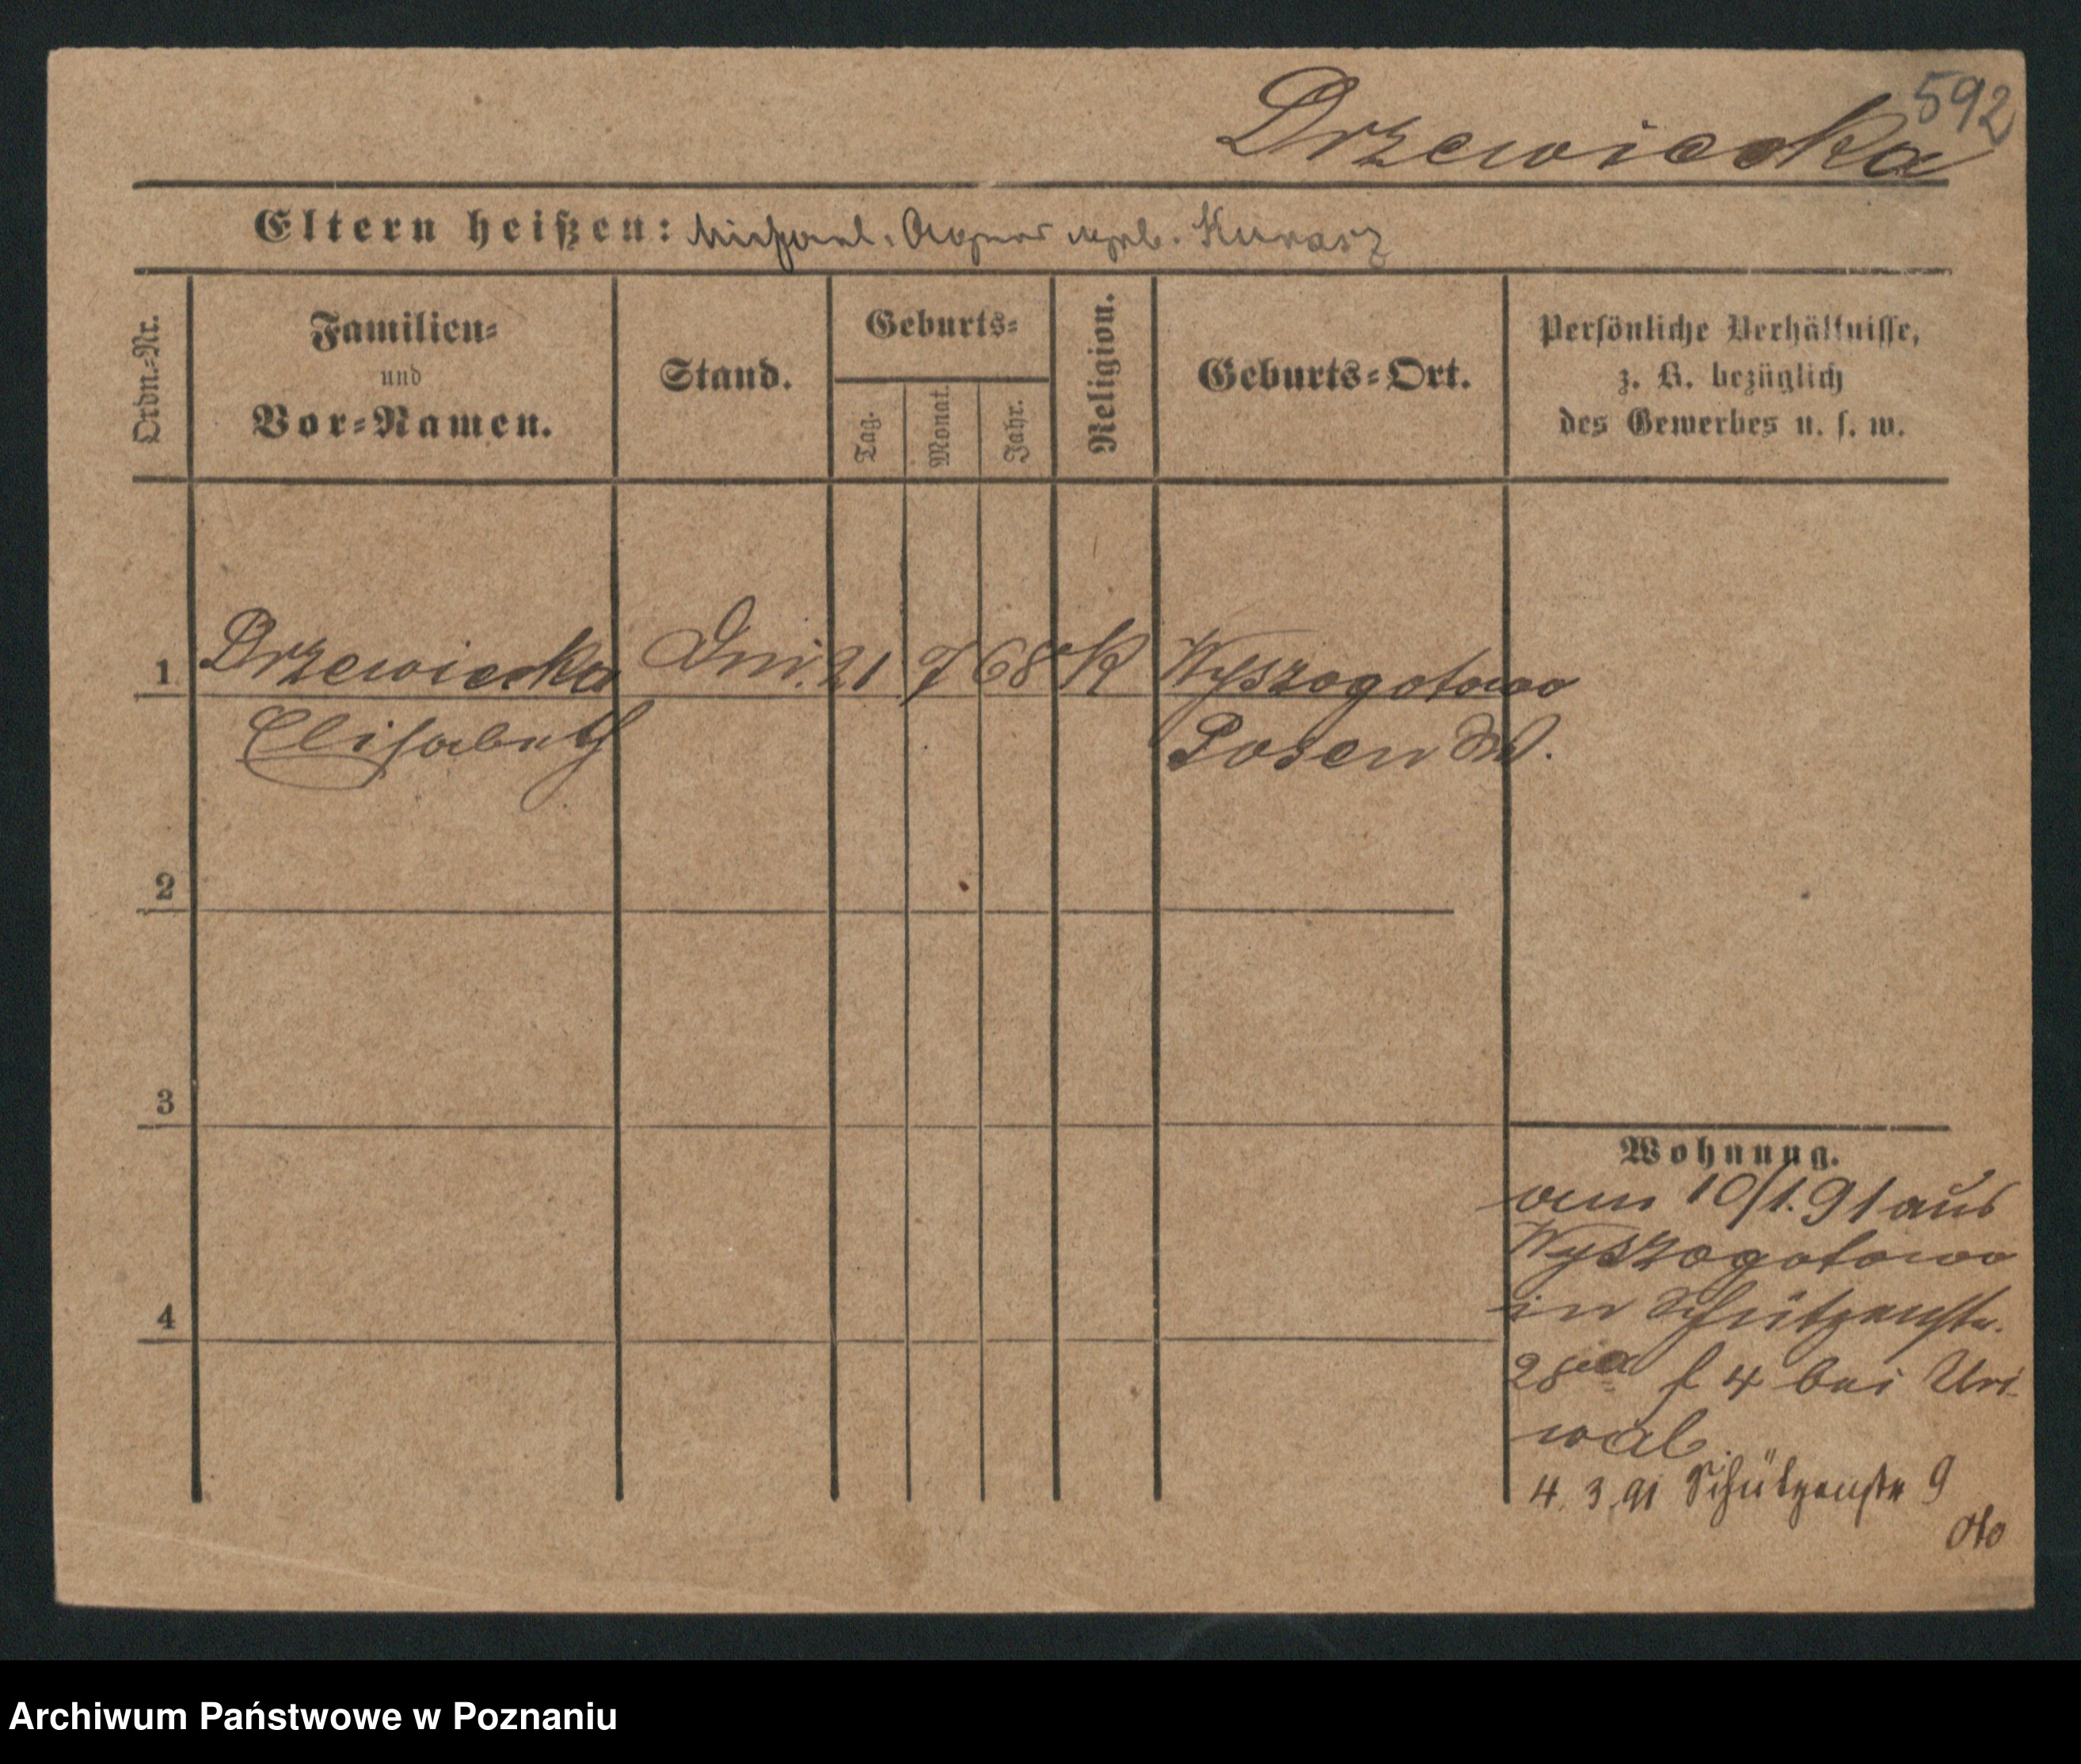 592
Drzewiecka
Eltern heißen: Michael. Agnes geb. Kurasz
Ordn.-Nr.
Familien-
und
Vor-Namen.
Stand.
Geburts-
Tag.
Monat.
Jahr.
Religion.
Geburts-Ort.
Persönliche Verhältnisse,
z. B. bezüglich
des Gewerbes u. s. w.
1 Drzewiecka 21 7 68 K Wyszogotowo
Elisabeth Posen W.
2
3
4
Wohnung.
am 10/1.91 aus
Wyszogotowo
in Schützenstr.
28 f 4 bei Uri-
wal
4.3.91 Schützenstr 9
Archiwum Państwowe w Poznaniu